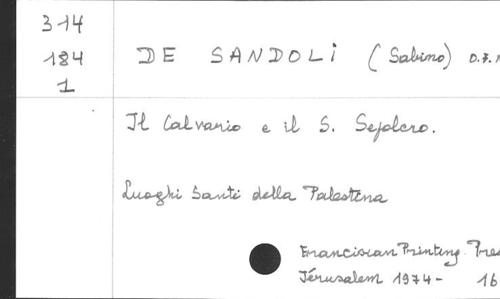 314
184
1
DE SANDOLI (Sabino) O.F.M
Il Calvario e il S. Sepolcro.
Luoghi Santi della Palestina
Franciscan Printing Pre
Jérusalem 1974- 16